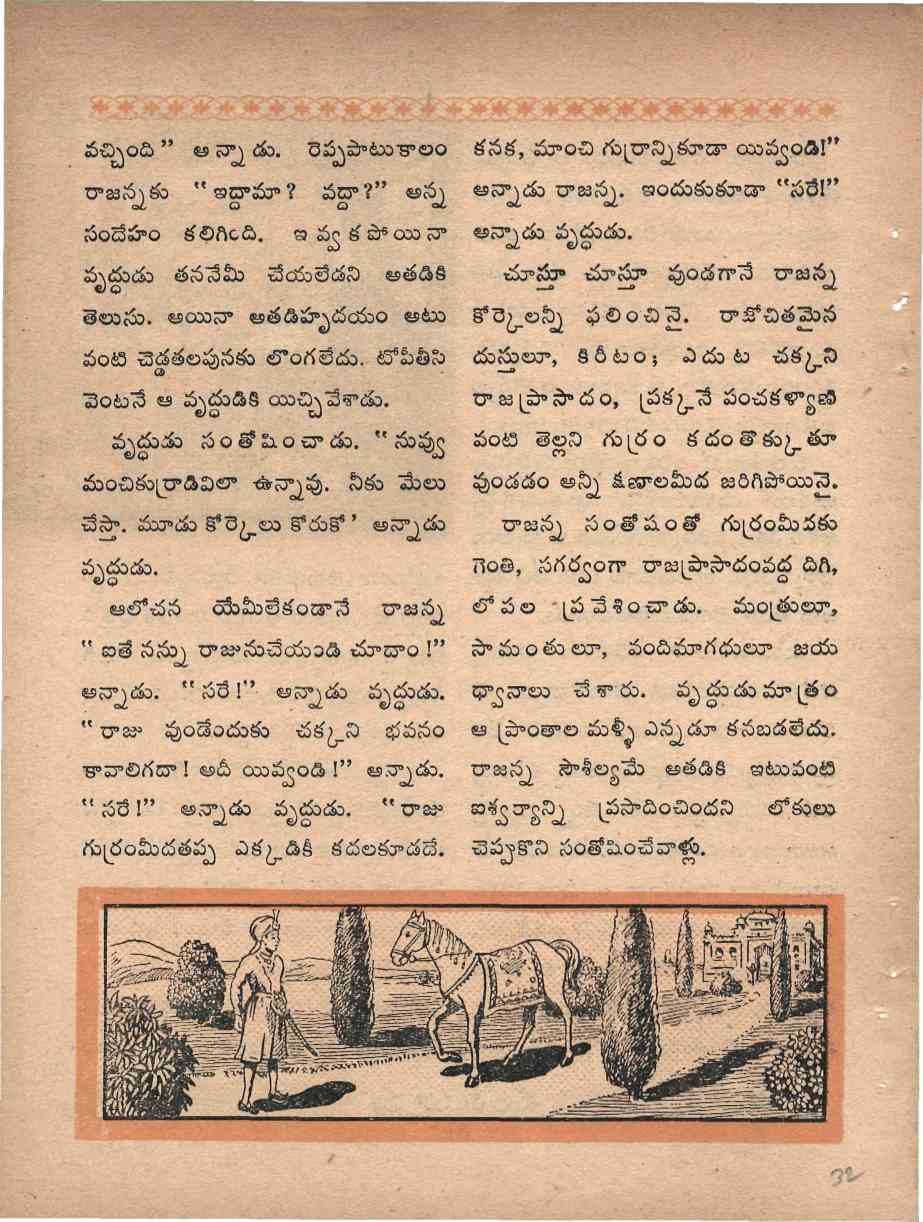 వచ్చింది" అన్నాడు. రెప్పపాటుకాలం
రాజన్నకు "ఇద్దామా? వద్దా?" అన్న
సందేహం కలిగింది. ఇవ్వకపోయినా
వృద్ధుడు తననేమీ చేయలేడని అతడికి
తెలుసు. అయినా అతడిహృదయం అటు
వంటి చెడ్డతలపునకు లొంగలేదు. టోపీతీసి
వెంటనే ఆ వృద్ధుడికి యిచ్చివేశాడు.
వృద్ధుడు సంతోషించాడు. "నువ్వు
మంచికుర్రాడివిలా ఉన్నావు. నీకు మేలు
చేస్తా. మూడు కోర్కెలు కోరుకో' అన్నాడు
వృద్ధుడు.
ఆలోచన యేమీలేకండానే రాజన్న
"ఐతే నన్ను రాజునుచేయండి చూదాం!"
అన్నాడు. "సరే!" అన్నాడు వృద్ధుడు.
"రాజు వుండేందుకు చక్కని భవనం
కావాలిగదా! అదీ యివ్వండి!" అన్నాడు.
"సరే!" అన్నాడు వృద్ధుడు. "రాజు
గుర్రంమీదతప్ప ఎక్కడికీ కదలకూడదే.
కనక, మాంచి గుర్రాన్నికూడా యివ్వండి!"
అన్నాడు రాజన్న. ఇందుకుకూడా "సరే!"
అన్నాడు వృద్ధుడు.
చూస్తూ చూస్తూ వుండగానే రాజన్న
కోర్కెలన్నీ ఫలించినై. రాజోచితమైన
దుస్తులూ, కిరీటం; ఎదుట చక్కని
రాజప్రాసాదం, ప్రక్కనే పంచకళ్యాణి
వంటి తెల్లని గుర్రం కదంతొక్కుతూ
వుండడం అన్నీ క్షణాలమీద జరిగిపోయినై.
రాజన్న సంతోషంతో గుర్రంమీదకు
గెంతి, సగర్వంగా రాజప్రాసాదంవద్ద దిగి,
లోపల ప్రవేశించాడు. మంత్రులూ,
సామంతులూ, వందిమాగధులూ జయ
ధ్వానాలు చేశారు. వృద్ధుడుమాత్రం
ఆ ప్రాంతాల మళ్ళీ ఎన్నడూ కనబడలేదు.
రాజన్న సౌశీల్యమే అతడికి ఇటువంటి
ఐశ్వర్యాన్ని ప్రసాదించిందని లోకులు
చెప్పుకొని సంతోషించేవాళ్లు.
32